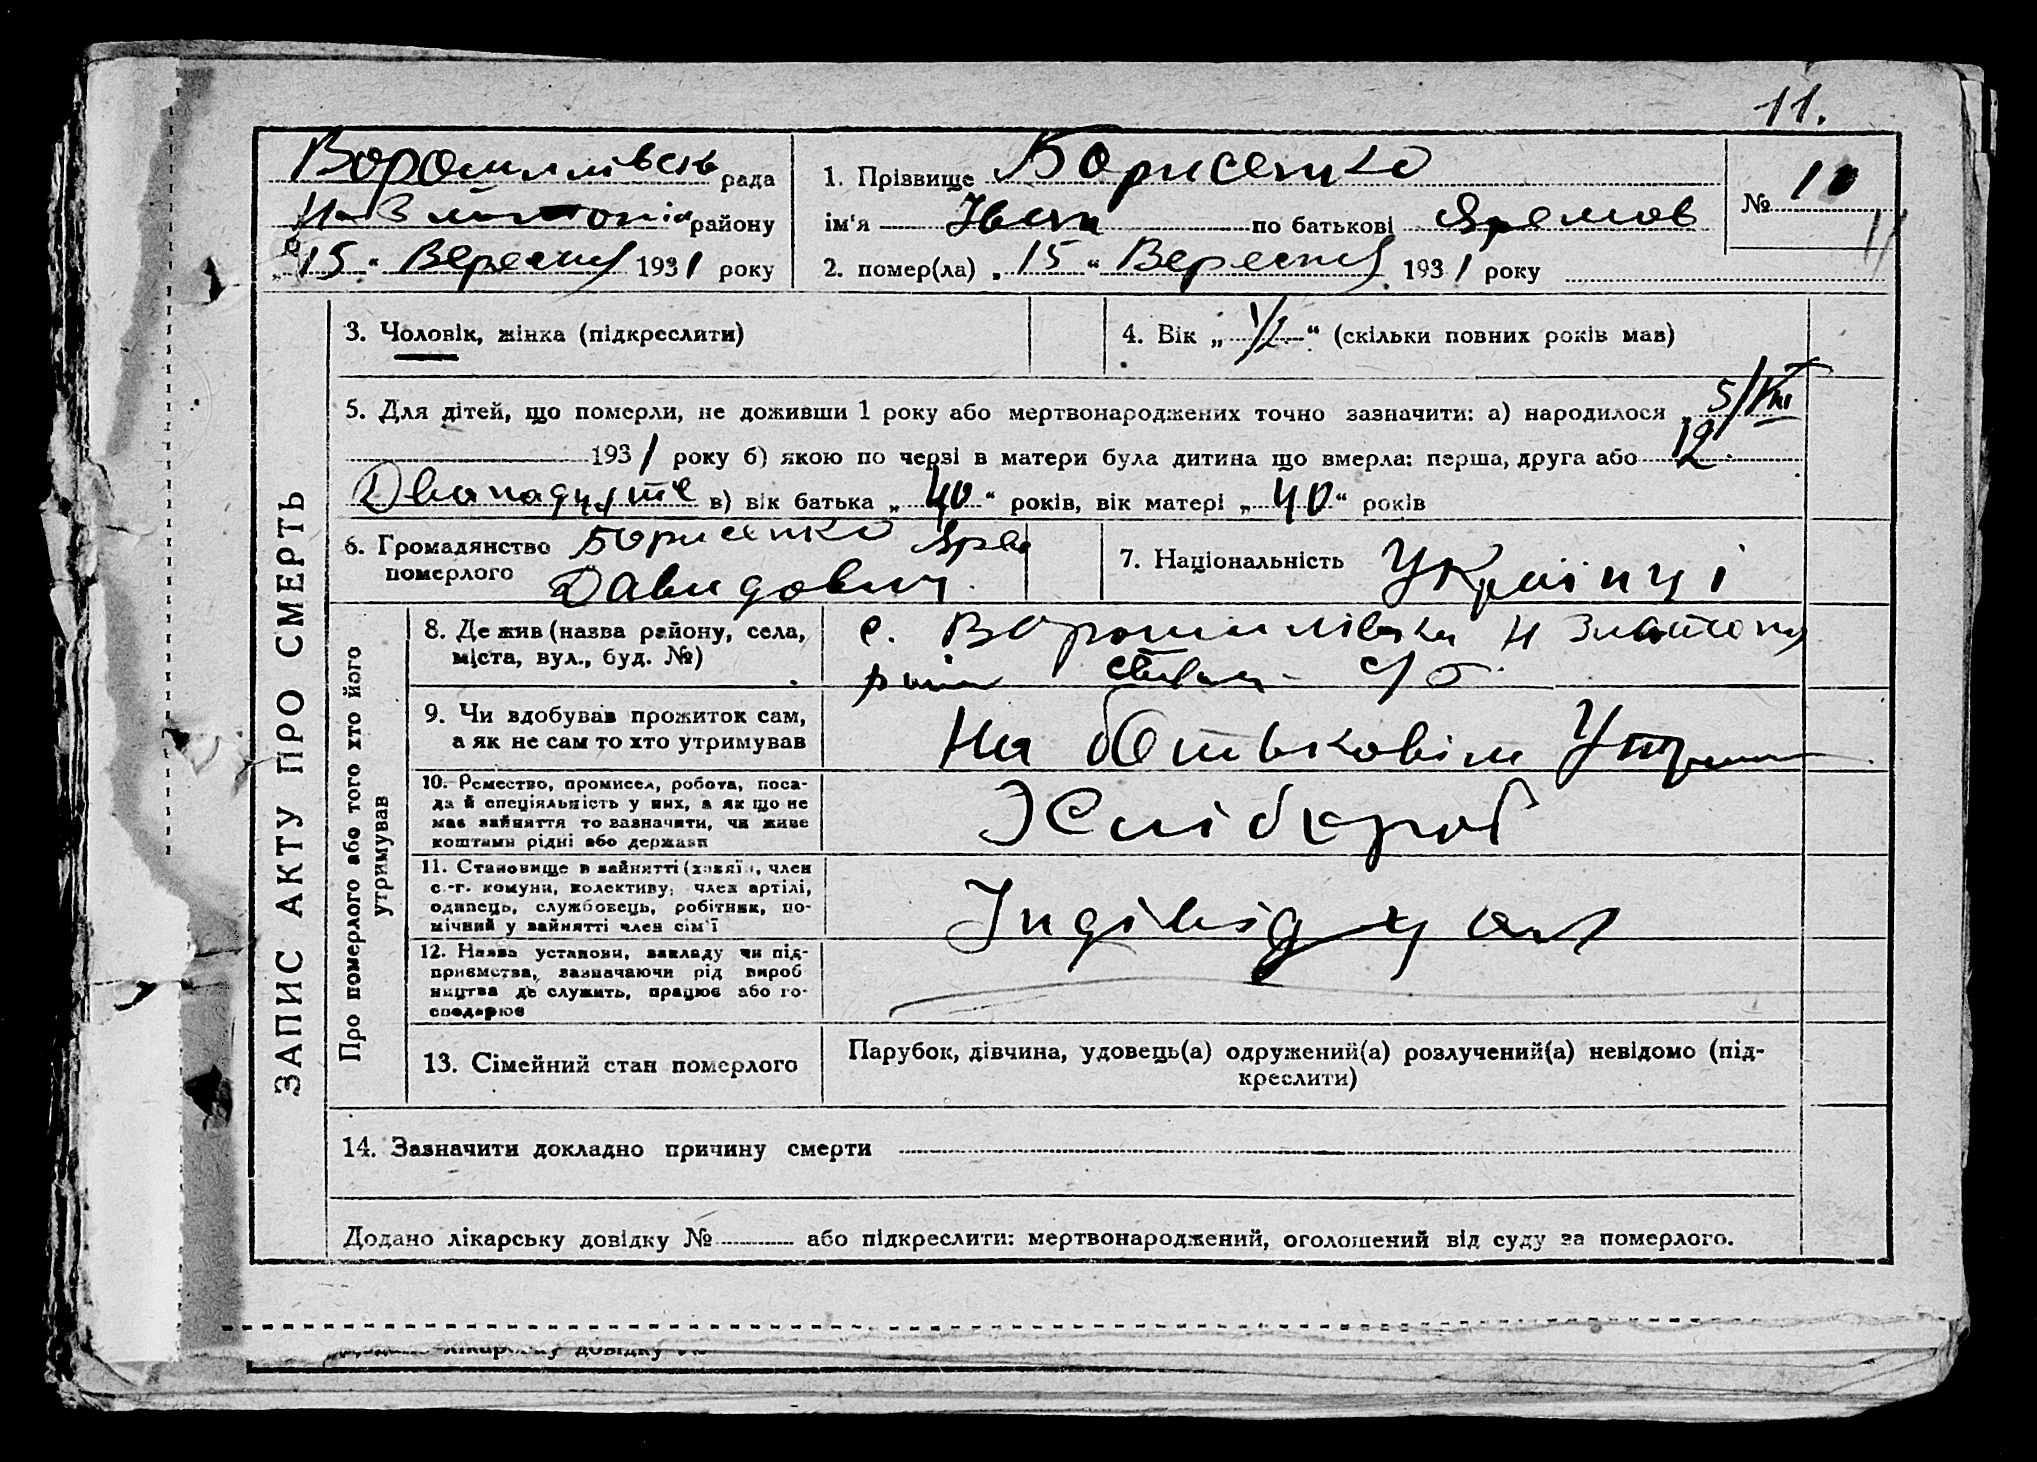 11.
Ворошилівська рада
Н-Златопіл району
„15" Вересня 1931 року
1. Прізвище Борисенко
ім'я Іван по батькові Яремов
2. помер(ла) „15" Вересня 1931 року
№ 10
11
ЗАПИС АКТУ ПРО СМЕРТЬ
3. Чоловік, жінка (підкреслити)
4. Вік „1/2" (скільки повних років мав)
5. Для дітей, що померли, не доживши 1 року або мертвонароджених точно зазначити: а) народилося „5/VIII
1931 року б) якою по черзі в матери була дитина що вмерла: перша, друга або 12.
Дванадцяте в) вік батька „40" років, вік матері „40" років
6. Громадянство Борисенко Ярем
померлого Давидович
7. Національність Українці
Про померлого або того хто його
утримував
8. Де жив (назва району, села,
міста, вул., буд. №)
с. Ворошилівка Н Златопіл
9. Чи вдобував прожиток сам,
а як не сам то хто утримував
На батьковім Утрим
10. Ремество, промисел, робота, поса-
да й спеціяльність у них, а як що не
має зайняття то зазначити, чи живе
коштами рідні або держави
Хлібороб
11. Становище в зайнятті (хазяїн, член
с.-г. комуни, колективу, член артілі,
одинець, службовець, робітник, по-
мічний у зайнятті член сім'ї
Індівід
12. Назва установи, закладу чи під-
приємства, зазначаючи рід вироб
ництва де служить, працює або го-
сподарює
13. Сімейний стан померлого
Парубок, дівчина, удовець(а) одружений(а) розлучений(а) невідомо (під-
креслити)
14. Зазначити докладно причину смерти
Додано лікарську довідку № або підкреслити: мертвонароджений, оголошений від суду за померлого.
лікарську довідку №